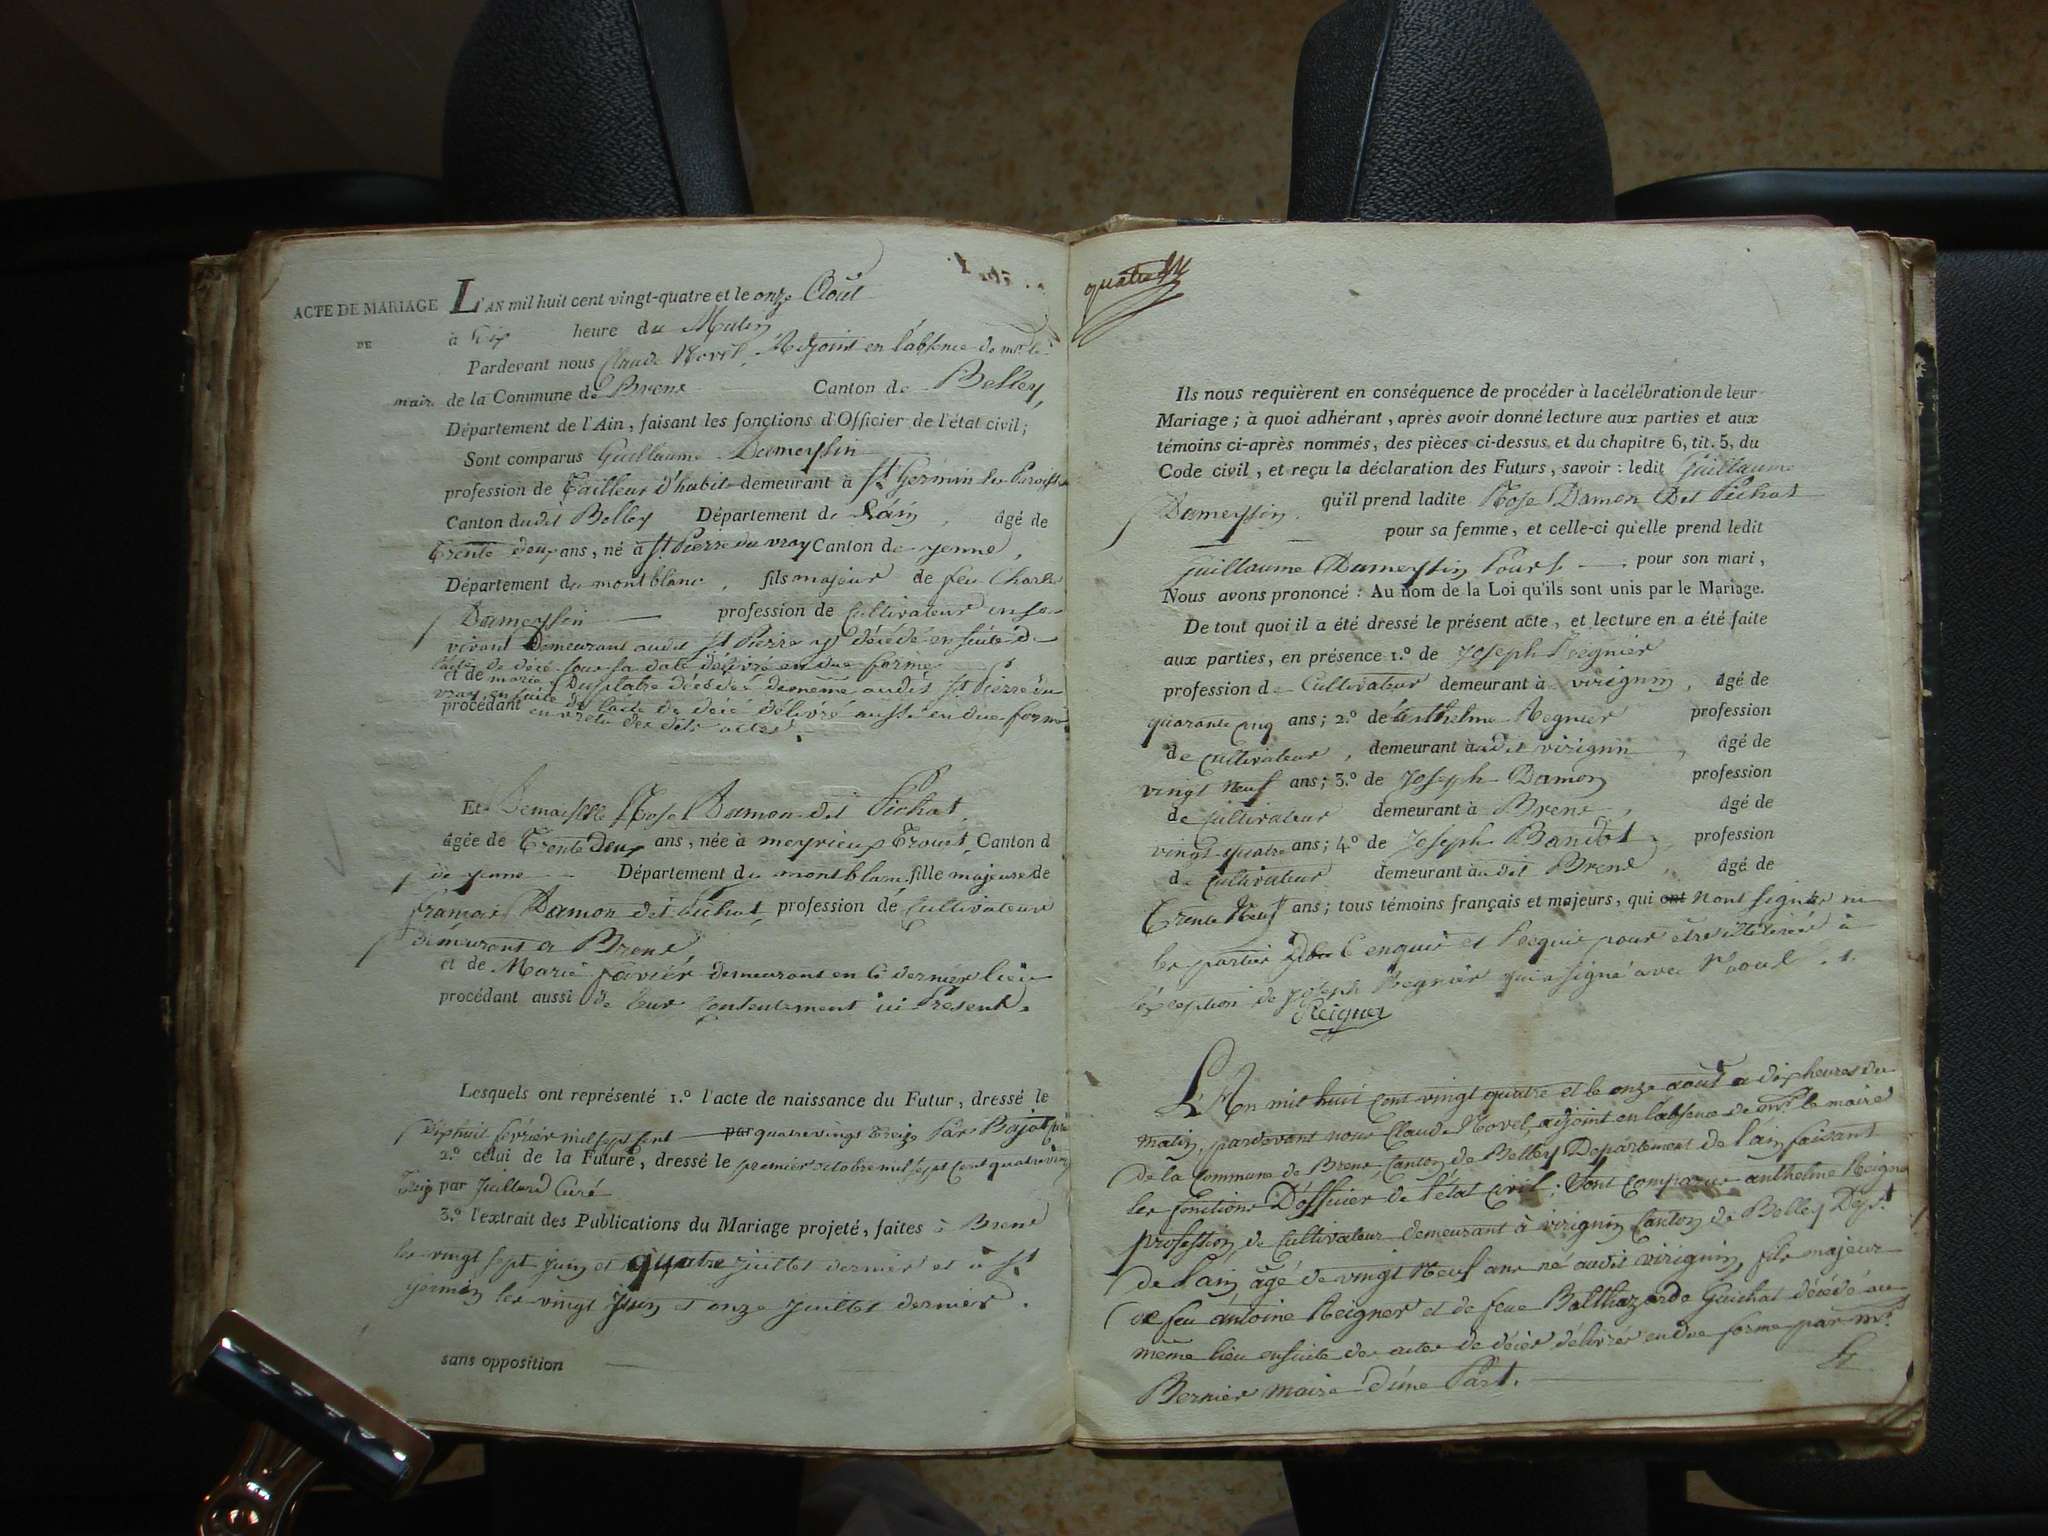 ACTE DE MARIAGE
DE
L'AN mil huit cent vingt-quatre et le onze Août
à dix heure du Matin
Pardevant nous Claude Rovel, Adjoint en l'absence de mr. le
maire de la Commune de Brene Canton de Belley,
Département de l'Ain, faisant les fonctions d'Officier de l'état civil;
Sont comparus Guillaume Dameysin
profession de Tailleur d'habit demeurant à St. Germin les Paroisses
Canton dudit Belley Département de L'ain, âgé de
Trente deux ans, né à St. Pierre du vray Canton de yenne,
Département du montblanc, fils majeur de feu Charle
Dameysin profession de Cultivateur en son
vivant Demeurant audit St Pierre y décédé en suite de
l'acte de décé sous sa date délivré en due forme
et de marie Dusplatre décédée demême audit St Pierre du
vray en suite de l'acte de décé délivré aussi en due forme
procédant en vretu des dits actes
Et Demaiselle Rose Damon dit Pichat,
âgée de Trente Deux ans, née à meyrieux Trouet, Canton d
de yenne Département du montblanc, fille majeure de
françois Damon dit Pichat, profession de Cultivateur
demeurant a Brene,
et de Marie favier demeurant en ce dernier lieu
procédant aussi de leur Consentement ici Présent.
Lesquels ont représenté 1.º l'acte de naissance du Futur, dressé le
Dixhuit février mil sept sent par quatrevingt Treize Par Bajat
2.º celui de la Future, dressé le premier octobre mil sept cent quatrevingt
Treize par Juillerd Curé
3.º l'extrait des Publications du Mariage projeté, faites à Brene
les vingt sept juin et quatre juillet dernier et à St
Germin les vingt Juin et onze Juillet dernier.
sans opposition
Ils nous requièrent en conséquence de procéder à la célébration de leur
Mariage; à quoi adhérant, après avoir donné lecture aux parties et aux
témoins ci-après nommés, des pièces ci-dessus et du chapitre 6, tit. 5, du
Code civil, et reçu la déclaration des Futurs, savoir: ledit Guillaume
Dameysin. qu'il prend ladite Rose Damon Dit Pichat
pour sa femme, et celle-ci qu'elle prend ledit
Guillaume Dameysin Pour pour son mari,
Nous avons prononcé: Au nom de la Loi qu'ils sont unis par le Mariage.
De tout quoi il a été dressé le présent acte, et lecture en a été faite
aux parties, en présence 1.º de Joseph Regnier
profession de Cultivateur demeurant à virignin, âgé de
quarante cinq ans; 2.º de Anthelme Regnier profession
de Cultivateur, demeurant audit virignin, âgé de
vingt Neuf ans; 3.º de Joseph Damon profession
de Cultivateur demeurant à Brene, âgé de
vingt quatre ans; 4.º de Joseph Bandot, profession
de Cultivateur demeurant audit Brene, âgé de
Trente Neuf ans; tous témoins français et majeurs, qui ont nont signer ni
les partier de Cenquis et Recquis pour être à
l'éxception de Joseph Regnier qui a signé avec Nous.
Reigner
L'An mil huit cent vingt quatre et le onze août a dix heures du
matin, pardevant nous Claude Rovel, adjoint en l'absence de mr. le maire
de la Commune de Brene Canton de Belley Département de l'ain faisant
les fonctions D'officier de l'état Civil; Sont Comparus anthelme Reigner
profession de Cultivateur demeurant à virignin Canton de Belley Dept.
de l'ain, âgé de vingt Neuf ans né audit virignin, fils majeur
de feu antoine Reigner et de feue Balthazarde Guichat décédé au
même lieu ensuite des actes de décès délivrés en due forme par mr.
Bernier maire d'une Part.